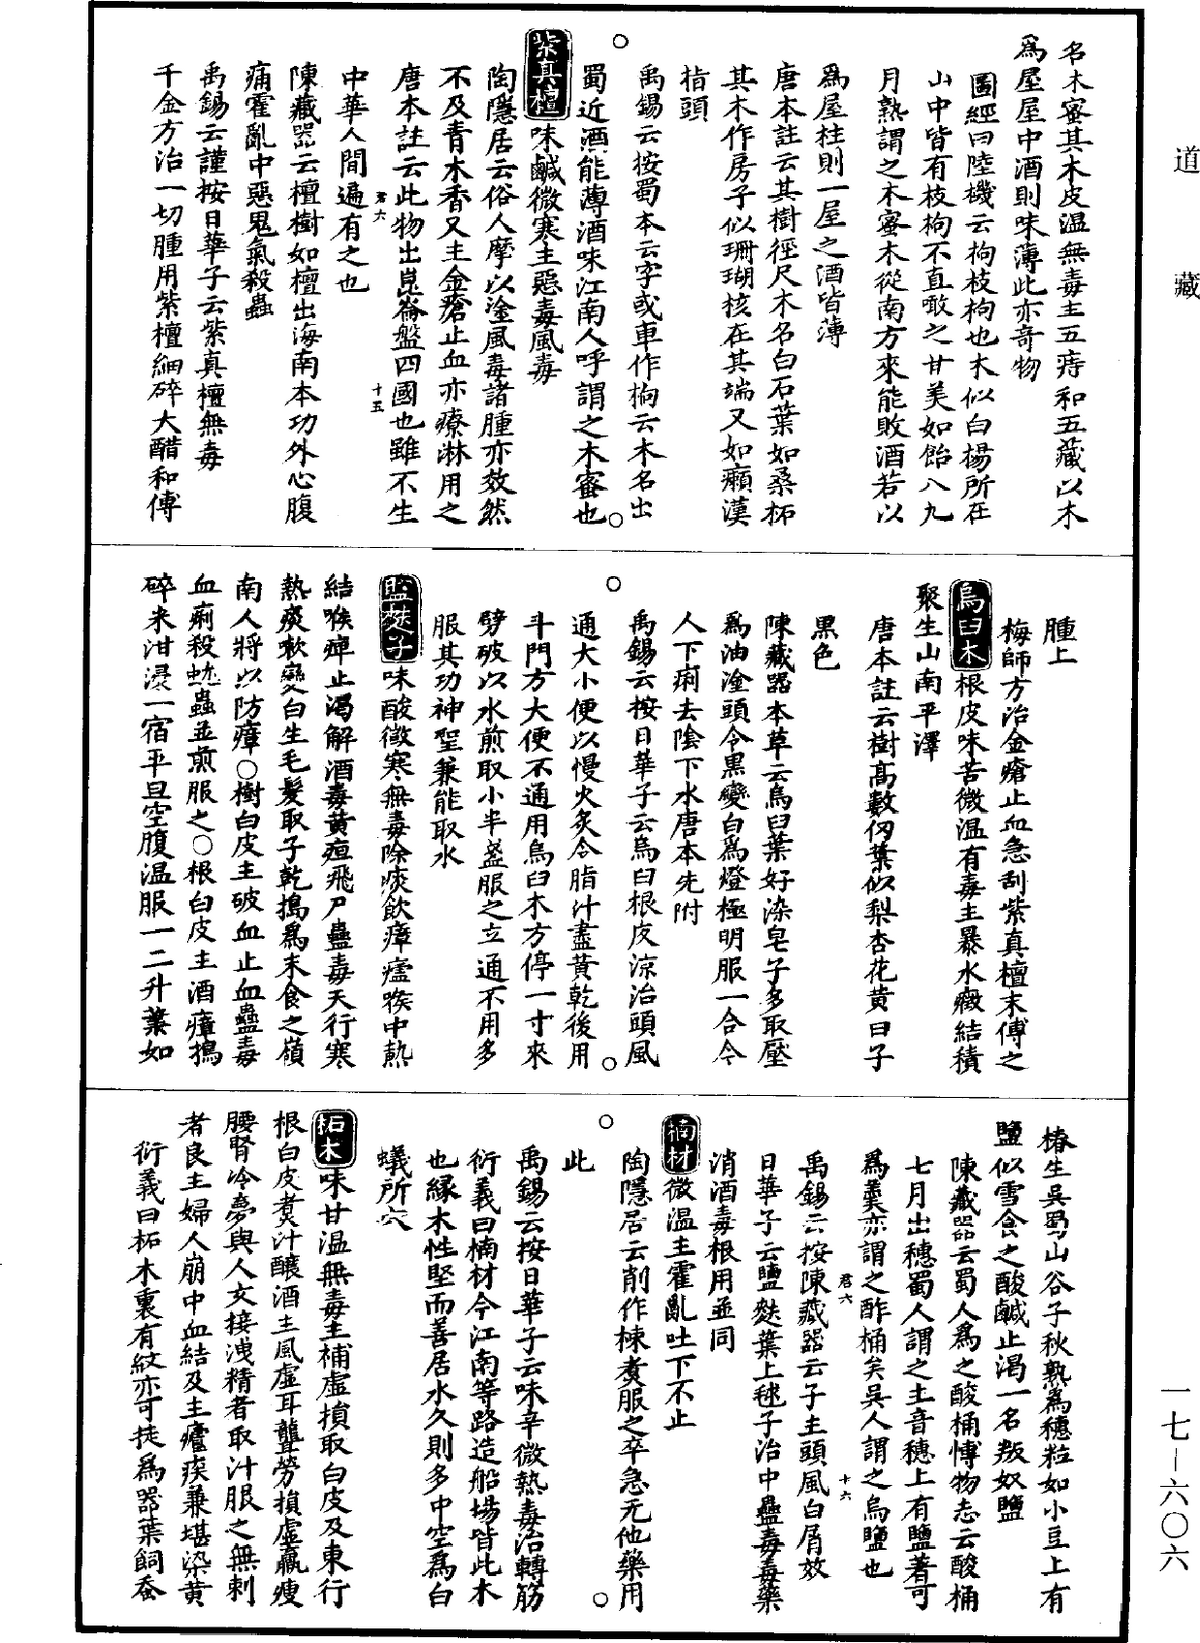 道藏
名木蜜其木皮温無毒主五痔和五藏以木
爲屋屋中酒則味薄此亦奇物
圖經曰陸機云枸枝枸也木似白楊所在
山中皆有枝枸不直敢之甘美如飴八九
月熟謂之木蜜木從南方來能敗酒若以
爲屋柱則一屋之酒皆薄
唐本註云其樹徑尺木名白石葉如桑柘
其木作房子似珊瑚核在其端又如癩漢
指頭
禹錫云按蜀本云字或車作枸云木名出
蜀近酒能薄酒味江南人呼謂之木蜜也
紫真檀味鹹微寒主惡毒風毒
陶隱居云俗人摩以塗風毒諸腫亦效然
不及青木香又主金瘡止血亦療淋用之
唐本註云此物出崑崙盤四國也雖不生
君六
十五
中華人間遍有之也
陳藏器云檀樹如檀出海南本功外心腹
痛霍亂中惡鬼氣殺蟲
禹錫云謹按日華子云紫真檀無毒
千金方治一切腫用紫檀細碎大醋和傅
腫上
梅師方治金瘡止血急刮紫真檀末傅之
烏臼木根皮味苦微温有毒主暴水癥結積
聚生山南平澤
唐本註云樹高數仭葉似梨杏花黄曰子
黑色
陳藏器本草云烏臼葉好染皂子多取壓
爲油塗頭令黒變白爲燈極明服一合令
人下痢去陰下水唐本先附
禹錫云按日華子云烏臼根皮涼治頭風
通大小便以慢火炙令脂汁盡黄乾後用
斗門方大便不通用烏臼木方停一寸來
劈破以水煎取小半盞服之立通不用多
服其功神聖兼能取水
鹽麩子味酸微寒無毒除痰飲瘴瘧喉中熱
結喉痺止渴解酒毒黄疸飛尸蠱毒天行寒
熱痰欬變白生毛髮取子乾搗爲末食之嶺
南人將以防瘴○樹白皮主破血止血蠱毒
血痢殺蚘蟲並煎服之○根白皮主酒疸搗
碎米泔浸一宿平旦空腹温服一二升葉如
椿生吳蜀山谷子秋熟爲穗粒如小豆上有
鹽似雪食之酸鹹止渴一名叛奴鹽
陳藏器云蜀人爲之酸桶愽物志云酸桶
七月出穗蜀人謂之主音穗上有鹽著可
爲羹亦謂之酢桶矣吳人謂之烏鹽也
君六
十六
禹錫云按陳藏器云子主頭風白屑效
日華子云鹽麩葉上毬子治中蠱毒毒藥
消酒毒根用並同
楠材微温主霍亂吐下不止
陶隱居云削作柹煮服之卒急无他藥用
此
禹錫云按日華子云味辛微熱毒治轉筋
衍義曰楠材今江南等路造船場皆此木
也緣木性堅而善居水久則多中空爲白
蟻所穴
柘木味甘温無毒主補虛損取白皮及東行
根白皮煮汁釀酒主風虛耳聾勞損虛羸瘦
腰腎冷夢與人交接洩精者取汁服之無刺
者良主婦人崩中血結及主瘧疾兼堪染黄
衍義曰柘木裏有紋亦可旋爲器葉飼蚕
一七－六〇六